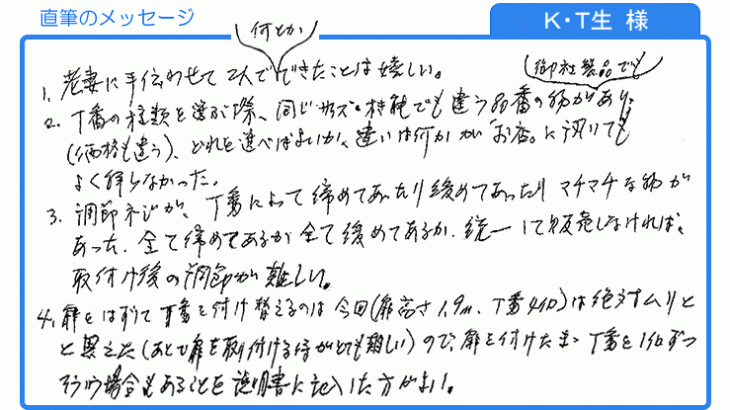 直筆のメッセージ
K・T生 様
何とか
1. 老妻に手伝わせて2人でできたことは嬉しい。
御社製品でも
2. 丁番の種類を選ぶ際、同じサイズ・機能でも違う品番の物があり、
(価格も違う)、どれを選べばよいか、違いは何か が「お店」に訊いても
よく解らなかった。
3. 調節ネジが、丁番によって締めてあったり緩めてあったりマチマチな物が
あった。全て締めてあるか全て緩めてあるか、統一して販売しなければ、
取付け後の調節が難しい。
4. 扉をはずして丁番を付け替えるのは今回(扉高さ1.9m、丁番4個)は絶対ムリだ
と思えた(あとで扉を取付ける時がとても難しい)ので、扉を付けたまま丁番を1個ずつ
そういう場合もあることを説明書に記入した方がよい。